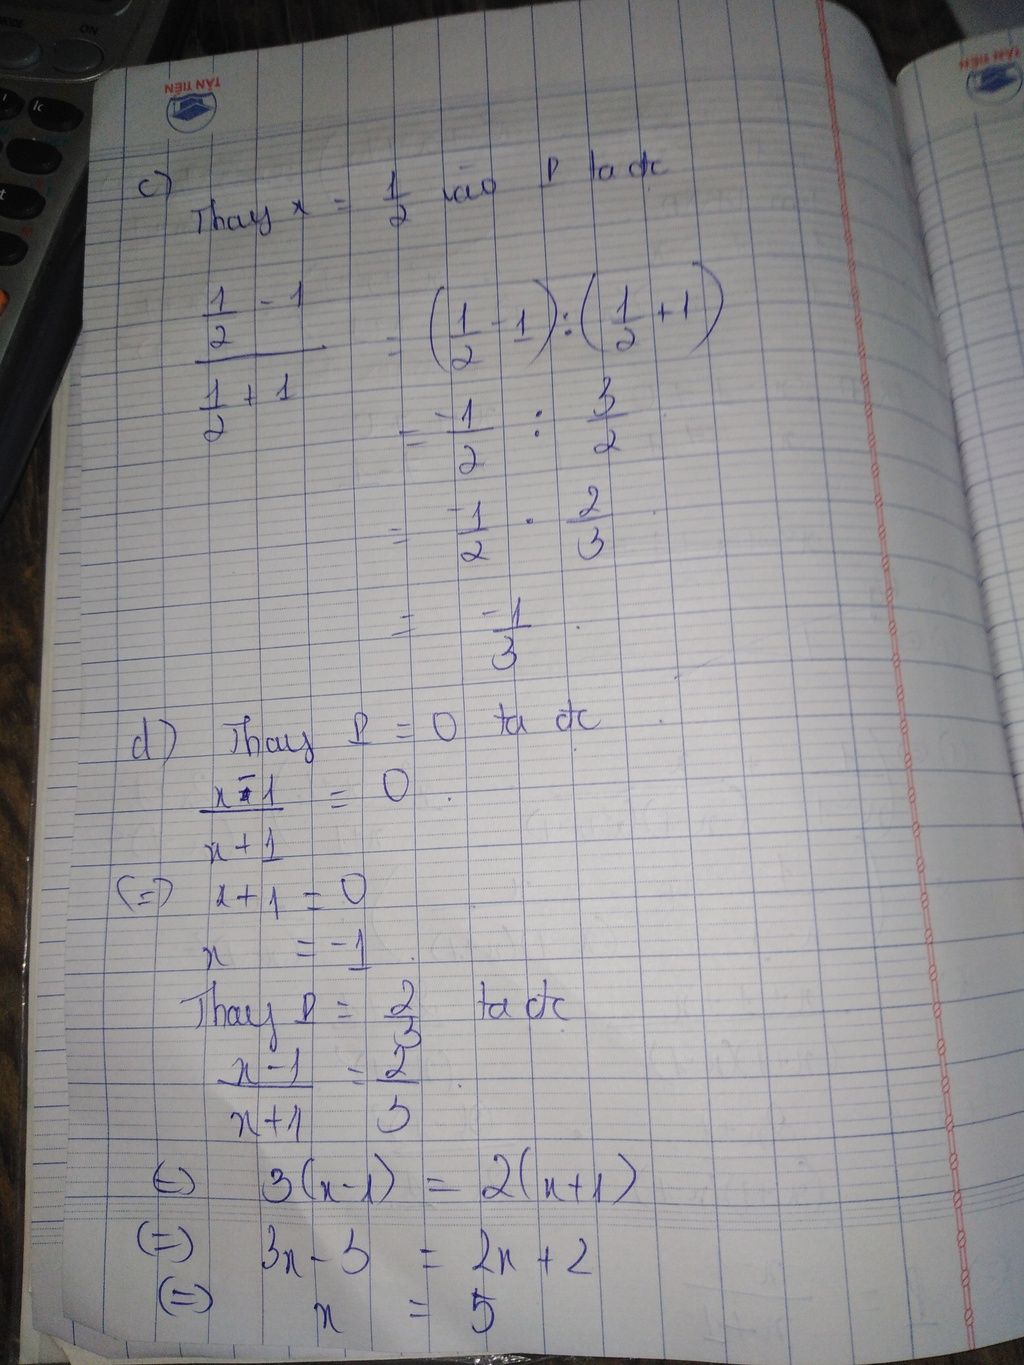 ON
TÂN TIẾN
TÂN TIẾN
c)
Thay x = 1/2 vào P ta đc
(1/2 - 1)/(1/2 + 1) = (1/2 - 1) : (1/2 + 1)
= -1/2 : 3/2
= -1/2 . 2/3
= -1/3
d) Thay P = 0 ta đc
(x-1)/(x+1) = 0
(=) x+1 = 0
x = -1
Thay P = 2/3 ta đc
(x-1)/(x+1) = 2/3
(=) 3(x-1) = 2(x+1)
(=) 3x - 3 = 2x + 2
(=) x = 5